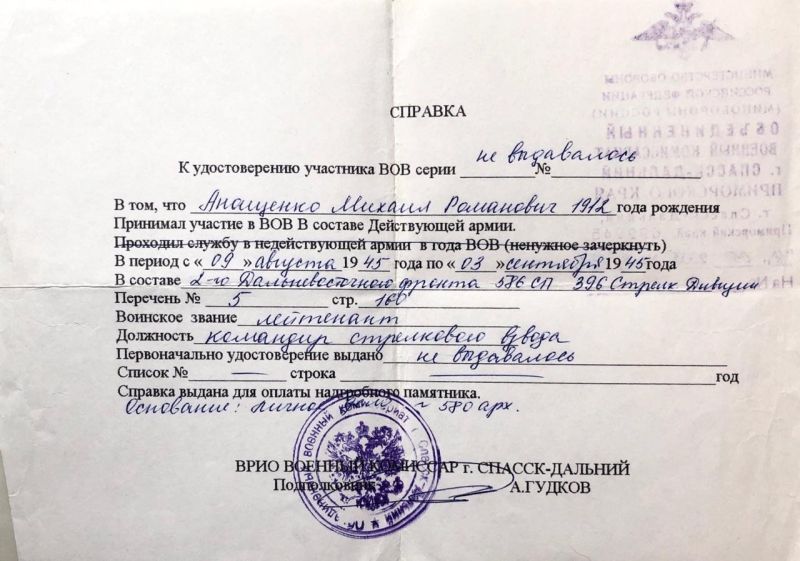 СПРАВКА
К удостоверению участника ВОВ серии не выдавалось №
В том, что Анащенко Михаил Романович 1912 года рождения
Принимал участие в ВОВ В составе Действующей армии.
Проходил службу в недействующей армии в года ВОВ (ненужное зачеркнуть)
В период с « 09 » августа 1945 года по « 03 » сентября 1945 года
В составе 2-го Дальневосточного фронта 586 СП 396 Стрелк Дивизии
Перечень № 5 стр. 160
Воинское звание лейтенант
Должность командир стрелкового взвода
Первоначально удостоверение выдано не выдавалось
Список № — строка — год
Справка выдана для оплаты надгробного памятника.
Основание: личное 580 арх.
ВРИО ВОЕННЫЙ КОМИССАР г. СПАССК-ДАЛЬНИЙ
Подполковник А.ГУДКОВ
МИНИСТЕРСТВО ОБОРОНЫ
РОССИЙСКОЙ ФЕДЕРАЦИИ
(МИНОБОРОНЫ РОССИИ)
ОБЪЕДИНЕННЫЙ
ВОЕННЫЙ КОМИССАРИАТ
г. СПАССК-ДАЛЬНИЙ
ПРИМОРСКОГО КРАЯ